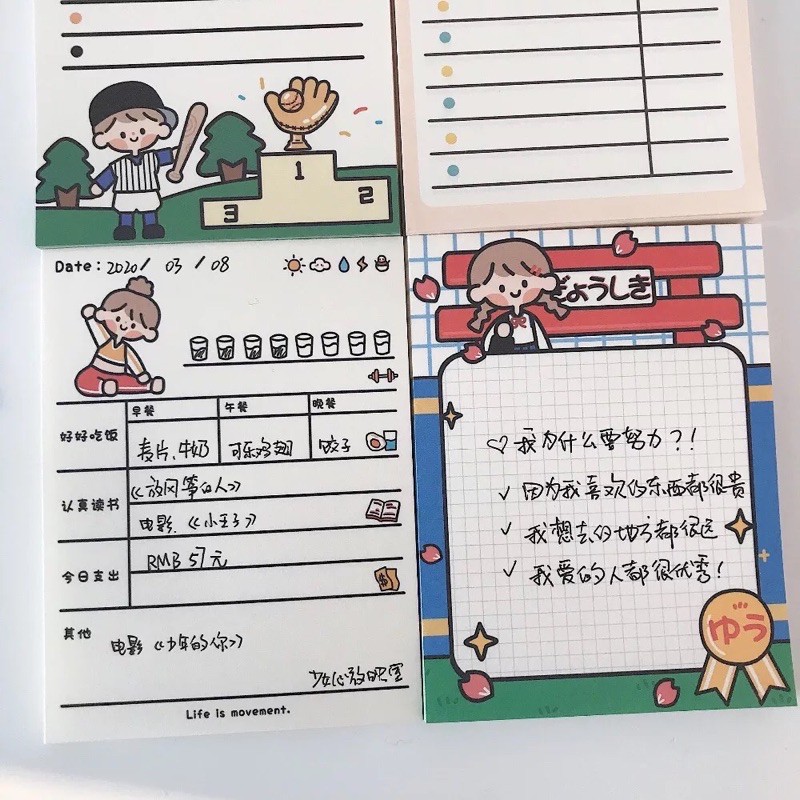 1
2
3
Date: 2020/ 03 / 08
早餐 午餐 晚餐
好好吃饭 麦片、牛奶 可乐鸡翅 饺子
认真读书 《放风筝的人》
电影:《小王子》
今日支出 RMB 57元
其他
电影《少年的你》
少女心放映室
Life is movement.
ぎょうしき
♡我为什么要努力?!
√ 因为我喜欢的东西都很贵
√ 我想去的地方都很远
√ 我爱的人都很优秀!
ゆう